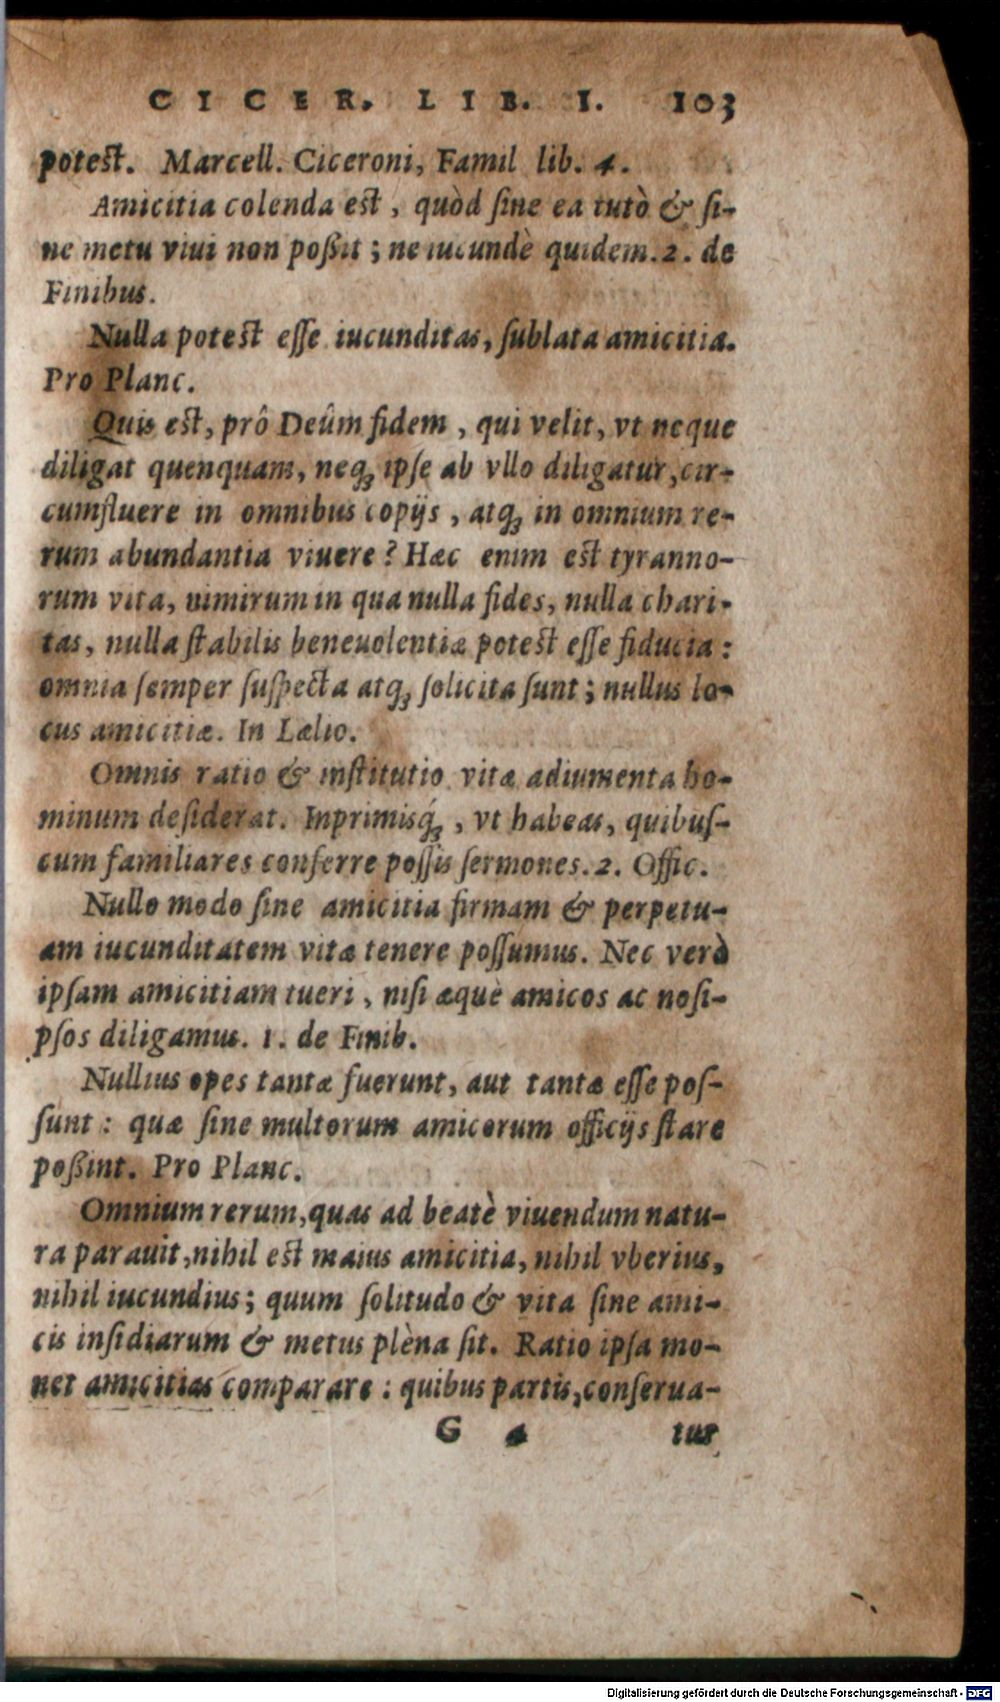 CICER. LIB. I. 103
potest. Marcell. Ciceroni, Famil lib. 4.
Amicitia colenda est, quòd sine ea tutò & si-
ne metu viui non poßit; ne iucundè quidem. 2. de
Finibus.
Nulla potest esse iucunditas, sublata amicitia.
Pro Planc.
Quis est, prô Deûm fidem, qui velit, vt neque
diligat quenquam, neq; ipse ab vllo diligatur, cir-
cumfluere in omnibus copijs, atq; in omnium re-
rum abundantia viuere? Hæc enim est tyranno-
rum vita, nimirum in qua nulla fides, nulla chari-
tas, nulla stabilis beneuolentiæ potest esse fiducia:
omnia semper suspecta atq; solicita sunt; nullus lo-
cus amicitiæ. In Lælio.
Omnis ratio & institutio vitæ adiumenta ho-
minum desiderat. Inprimisq́;, vt habeas, quibus-
cum familiares conferre possis sermones. 2. Offic.
Nullo modo sine amicitia firmam & perpetu-
am iucunditatem vitæ tenere possumus. Nec verò
ipsam amicitiam tueri, nisi æquè amicos ac nosi-
psos diligamus. 1. de Finib.
Nullius opes tantæ fuerunt, aut tantæ esse pos-
sunt: quæ sine multorum amicorum officijs stare
poßint. Pro Planc.
Omnium rerum, quas ad beatè viuendum natu-
ra parauit, nihil est maius amicitia, nihil vberius,
nihil iucundius; quum solitudo & vita sine ami-
cis insidiarum & metus plèna sit. Ratio ipsa mo-
net amicitias comparare: quibus partis, conserua-
G 4 tur
Digitalisierung gefördert durch die Deutsche Forschungsgemeinschaft - DFG